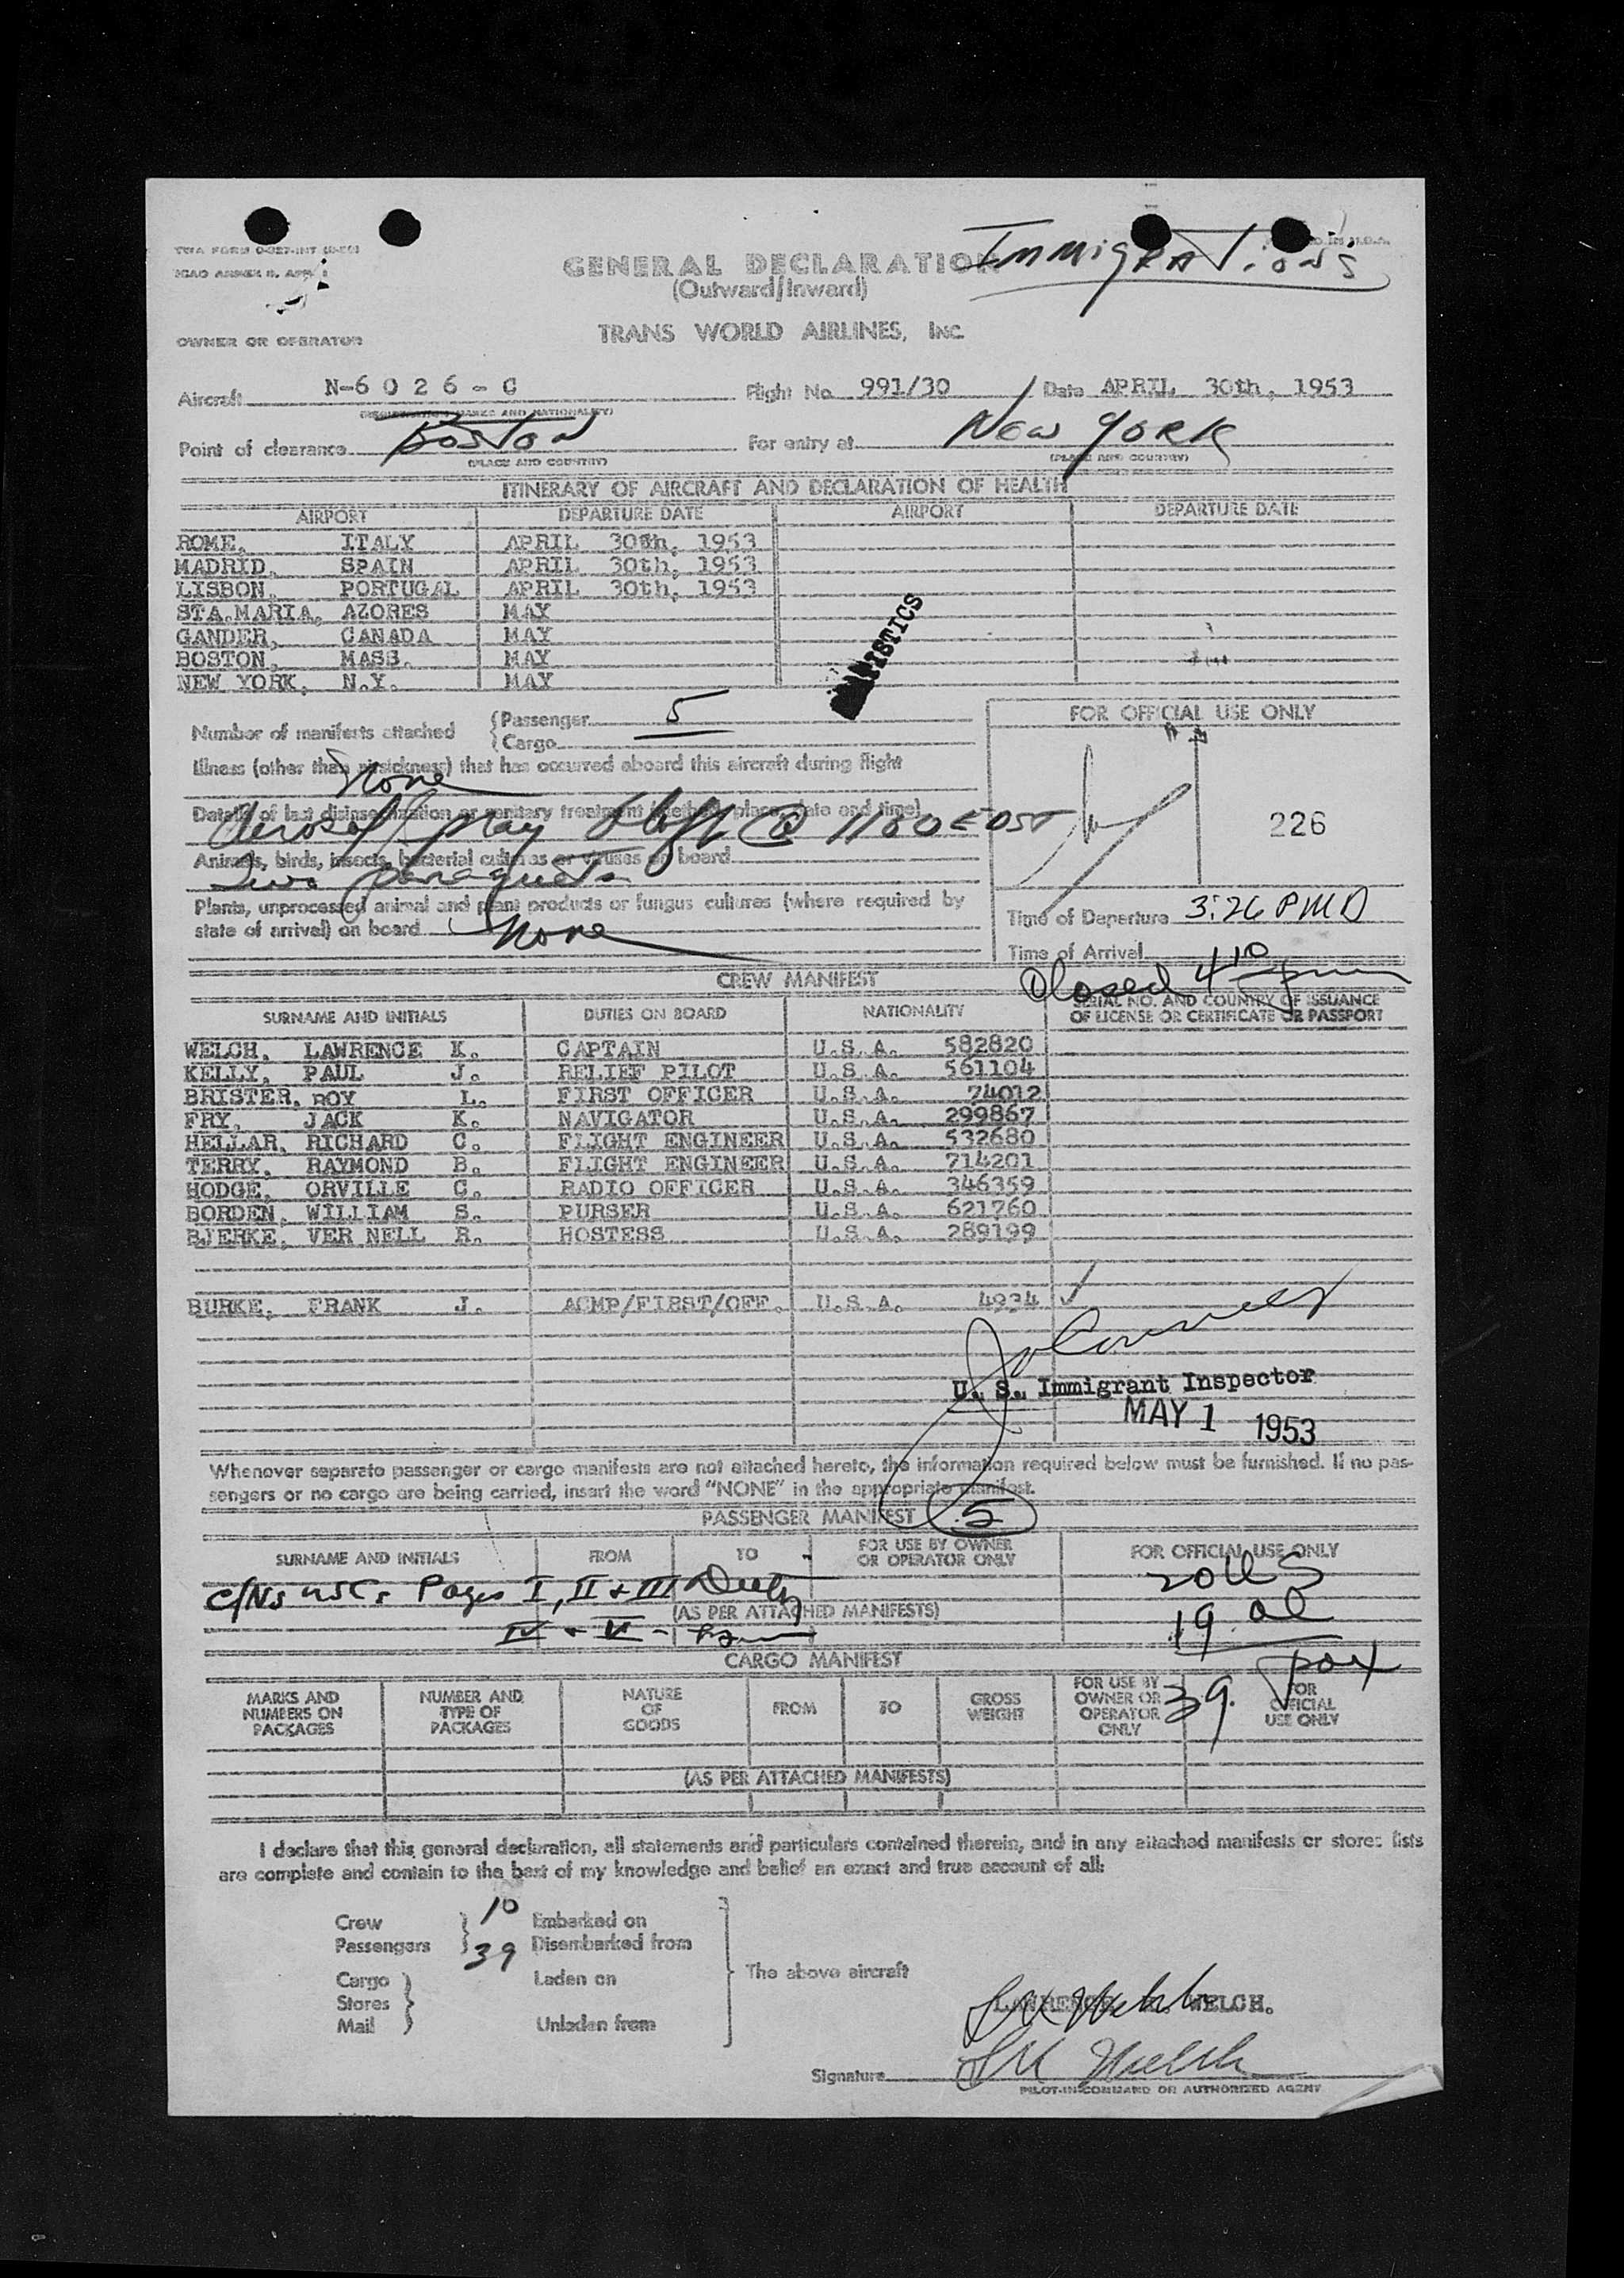 TWA FORM O-027-INT
ICAO ANNEX 9, APP. 1
Immigrations
GENERAL DECLARATION
(Outward/Inward)
TRANS WORLD AIRLINES, INC.
OWNER OR OPERATOR
Aircraft N-6 0 2 6 - C Flight No. 991/30 Date APRIL 30th, 1953
(REGISTRATION MARKS AND NATIONALITY)
Point of clearance Boston For entry at New York
(PLACE AND COUNTRY) (PLACE AND COUNTRY)
ITINERARY OF AIRCRAFT AND DECLARATION OF HEALTH
AIRPORT DEPARTURE DATE AIRPORT DEPARTURE DATE
ROME, ITALY APRIL 30th, 1953
MADRID, SPAIN APRIL 30th, 1953
LISBON, PORTUGAL APRIL 30th, 1953
STA.MARIA, AZORES MAY
GANDER, CANADA MAY
BOSTON, MASS. MAY
NEW YORK, N.Y. MAY
ISTICS
Number of manifests attached { Passenger 5
{ Cargo
FOR OFFICIAL USE ONLY
Illness (other than airsickness) that has occurred aboard this aircraft during flight
None
Details of last disinsectization or sanitary treatment (method, place, date and time)
Aerosol @ 1180 EDST
226
Animals, birds, insects, bacterial cultures or viruses on board
Two paraqueets
Plants, unprocessed animal and plant products or fungus cultures (where required by
state of arrival) on board None
Time of Departure 3:26 PMD
Time of Arrival
Closed 4 10 pm
CREW MANIFEST
SURNAME AND INITIALS DUTIES ON BOARD NATIONALITY SERIAL NO. AND COUNTRY OF ISSUANCE
OF LICENSE OR CERTIFICATE OR PASSPORT
WELCH, LAWRENCE K. CAPTAIN U.S.A. 582820
KELLY, PAUL J. RELIEF PILOT U.S.A. 561104
BRISTER, ROY L. FIRST OFFICER U.S.A. 74012
FRY, JACK K. NAVIGATOR U.S.A. 299867
HELLAR, RICHARD C. FLIGHT ENGINEER U.S.A. 532680
TERRY, RAYMOND B. FLIGHT ENGINEER U.S.A. 714201
HODGE, ORVILLE C. RADIO OFFICER U.S.A. 346359
BORDEN, WILLIAM S. PURSER U.S.A. 621760
BJERKE, VER NELL R. HOSTESS U.S.A. 289199
BURKE, FRANK J. ACMP/FIRST/OFF. U.S.A. 4934
U. S. Immigrant Inspector
MAY 1 1953
Whenever separate passenger or cargo manifests are not attached hereto, the information required below must be furnished. If no pas-
sengers or no cargo are being carried, insert the word "NONE" in the appropriate manifest.
PASSENGER MANIFEST 5
SURNAME AND INITIALS FROM TO FOR USE BY OWNER
OR OPERATOR ONLY FOR OFFICIAL USE ONLY
Pages I, II + III
(AS PER ATTACHED MANIFESTS)
20 US
19 al
39. pax
CARGO MANIFEST
MARKS AND
NUMBERS ON
PACKAGES
NUMBER AND
TYPE OF
PACKAGES
NATURE
OF
GOODS
FROM
TO
GROSS
WEIGHT
FOR USE BY
OWNER OR
OPERATOR
ONLY
FOR
OFFICIAL
USE ONLY
(AS PER ATTACHED MANIFESTS)
I declare that this general declaration, all statements and particulars contained therein, and in any attached manifests or stores lists
are complete and contain to the best of my knowledge and belief an exact and true account of all:
Crew 10 Embarked on
Passengers 39 Disembarked from
Cargo Laden on
Stores
Mail Unladen from
The above aircraft
LAWRENCE K. WELCH.
Signature LK Welch
PILOT-IN-COMMAND OR AUTHORIZED AGENT